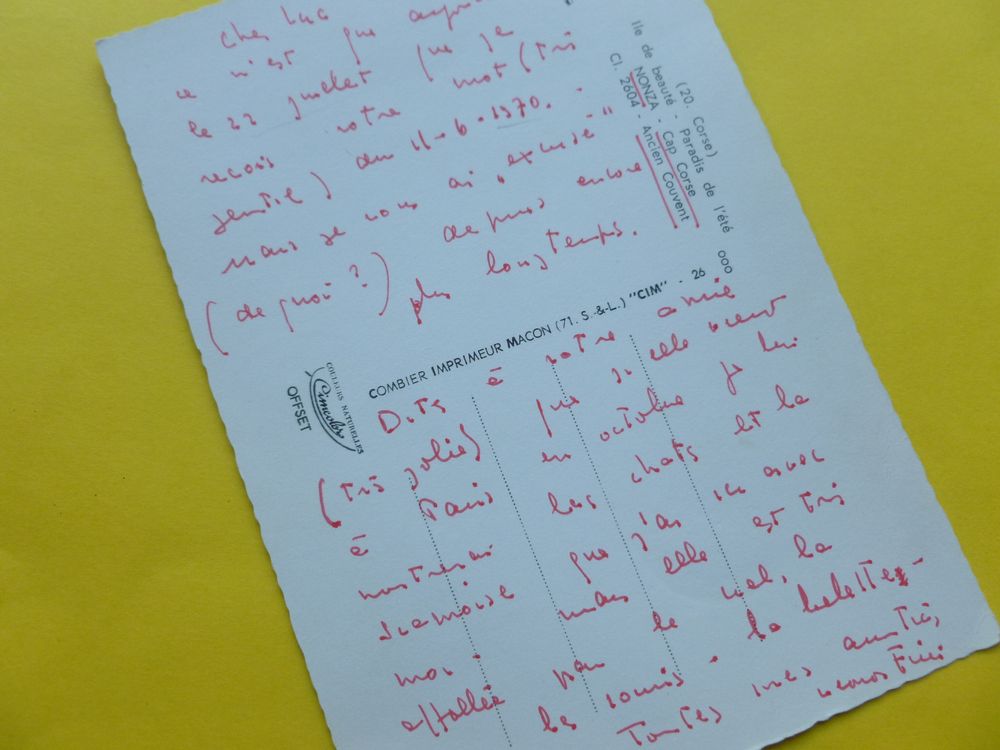 cher Luc
ce n'est que
le 22 juillet que je
reçois votre mot (très
gentil) du 11-6-1970.
mais je vous ai "excusé"
(de quoi ?) depuis encore
plus longtemps.
(20. Corse)
Ile de beauté - Paradis de l'été
NONZA - Cap Corse
Cl. 2604 - Ancien Couvent
000
COMBIER IMPRIMEUR MACON (71. S.-&-L.) "CIM" - 26
COULEURS NATURELLES
Cimcolor
OFFSET
Dites à votre amie
(très jolie) que si elle vient
à Paris en octobre je lui
montrerai les chats et la
siamoise que j'ai ici avec
moi. mais elle est très
affollée par le ciel, la
les souris - la belette -
Toutes mes amitiés,